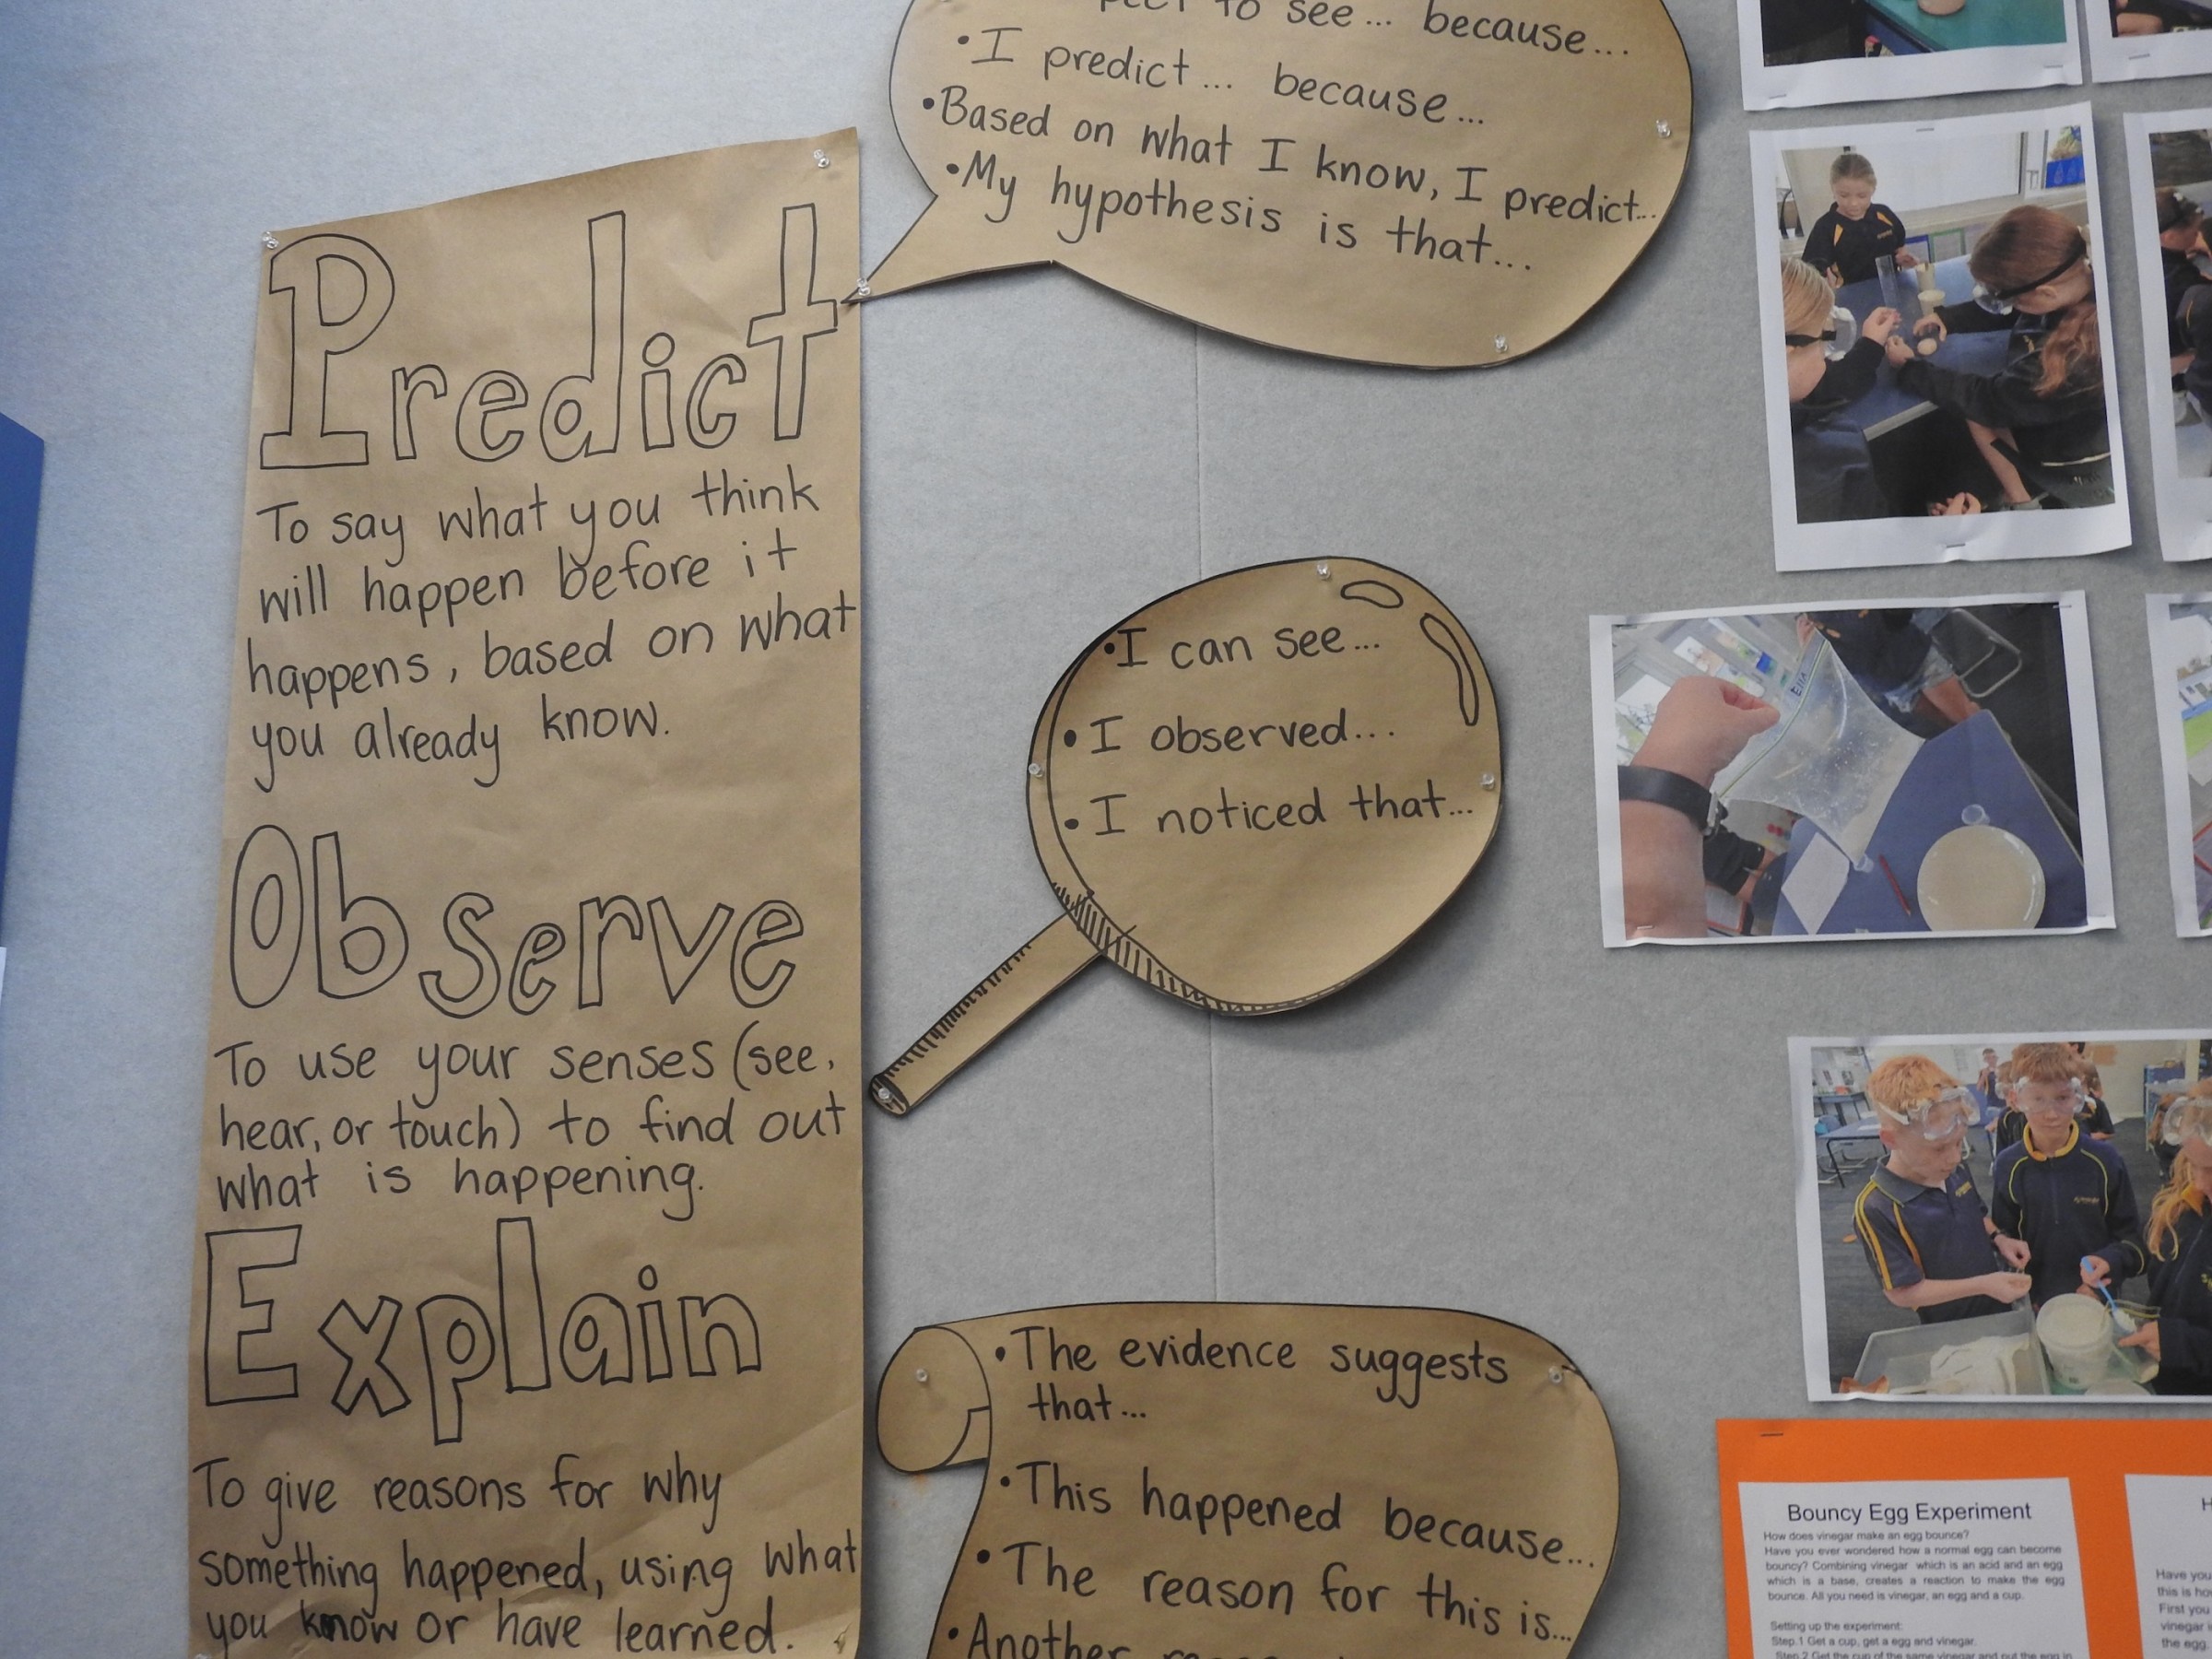 Predict
To say what you think
will happen before it
happens, based on what
you already know.
Observe
To use your senses (see,
hear, or touch) to find out
what is happening.
Explain
To give reasons for why
something happened, using what
you know or have learned.
to see... because...
• I predict... because...
• Based on what I know, I predict...
• My hypothesis is that...
• I can see...
• I observed...
• I noticed that...
• The evidence suggests
that...
• This happened because...
• The reason for this is...
• Another
Ella
Bouncy Egg Experiment
How does vinegar make an egg bounce?
Have you ever wondered how a normal egg can become
bouncy? Combining vinegar which is an acid and an egg
which is a base, creates a reaction to make the egg
bounce. All you need is vinegar, an egg and a cup.
Setting up the experiment:
Step.1 Get a cup, get a egg and vinegar.
Step.2 Get the cup of the same vinegar and put the egg in
H
Have you
this is ho
First you
vinegar i
the egg.